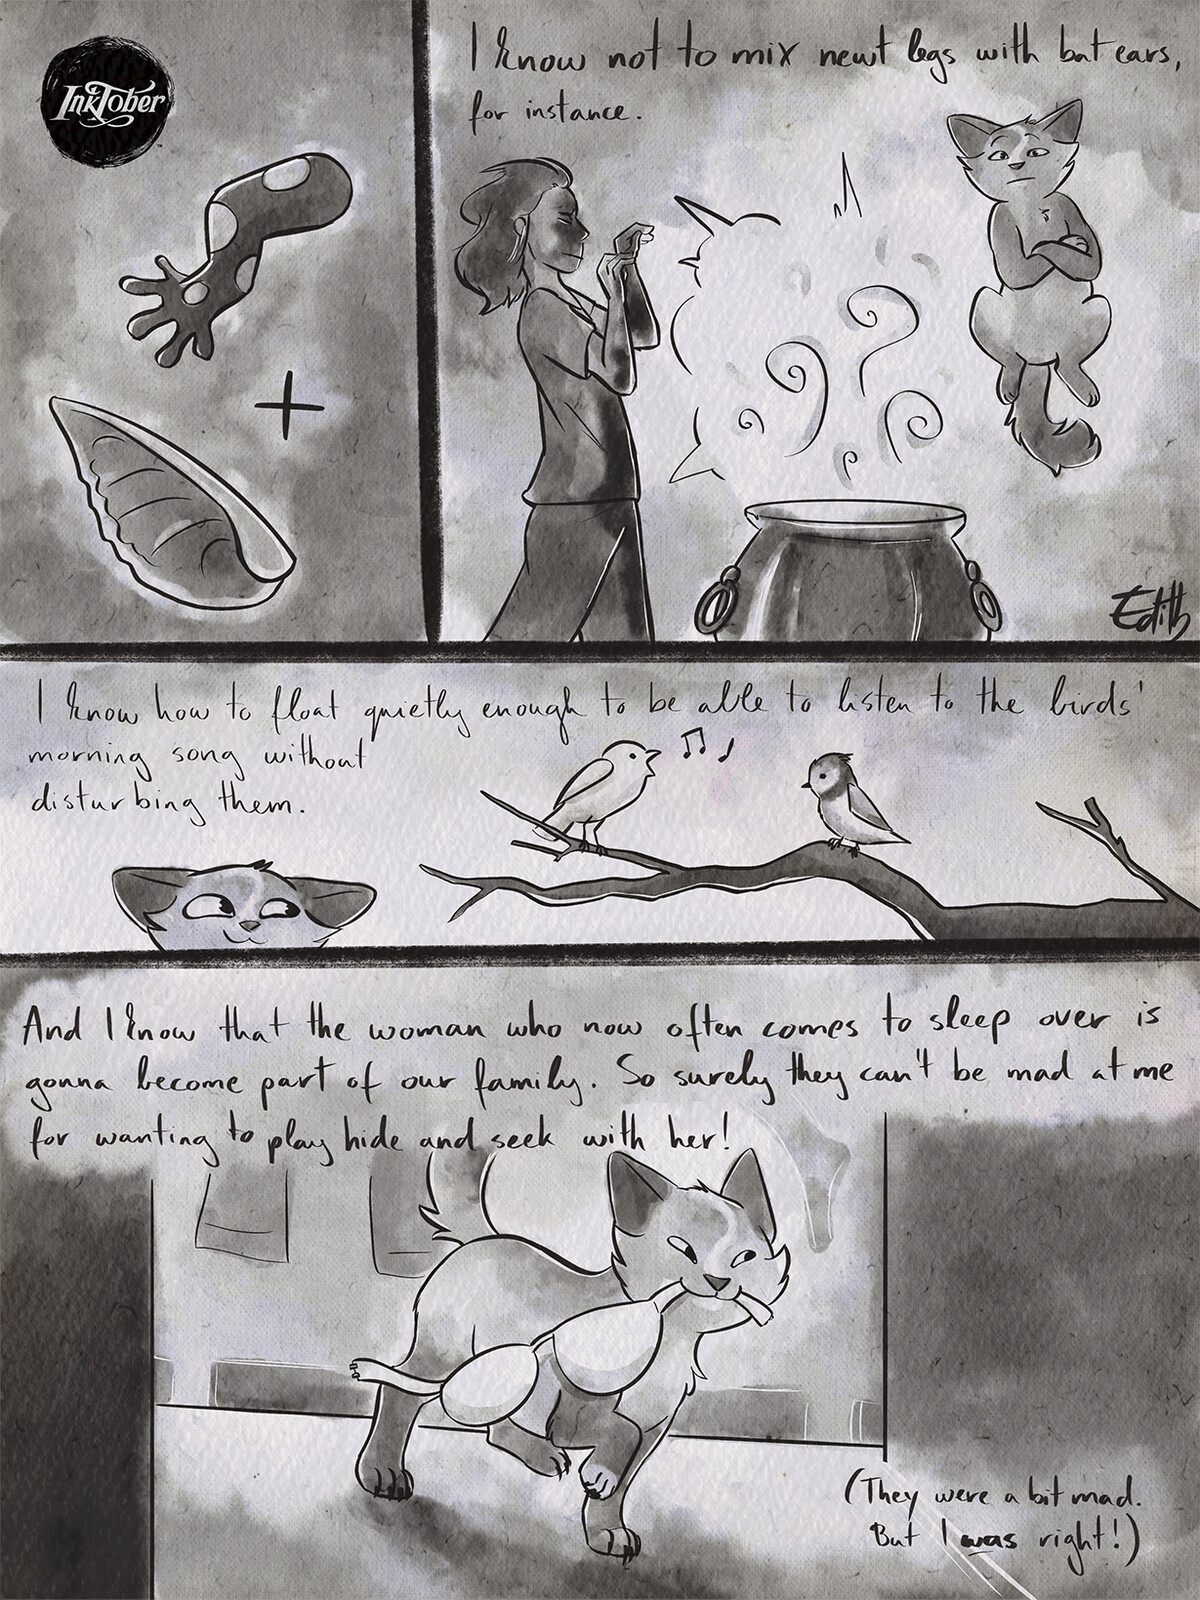 InkTober
I know not to mix newt legs with bat ears,
for instance.
Edith
I know how to float quietly enough to be able to listen to the birds'
morning song without
disturbing them.
And I know that the woman who now often comes to sleep over is
gonna become part of our family. So surely they can't be mad at me
for wanting to play hide and seek with her!
(They were a bit mad.
But I was right!)